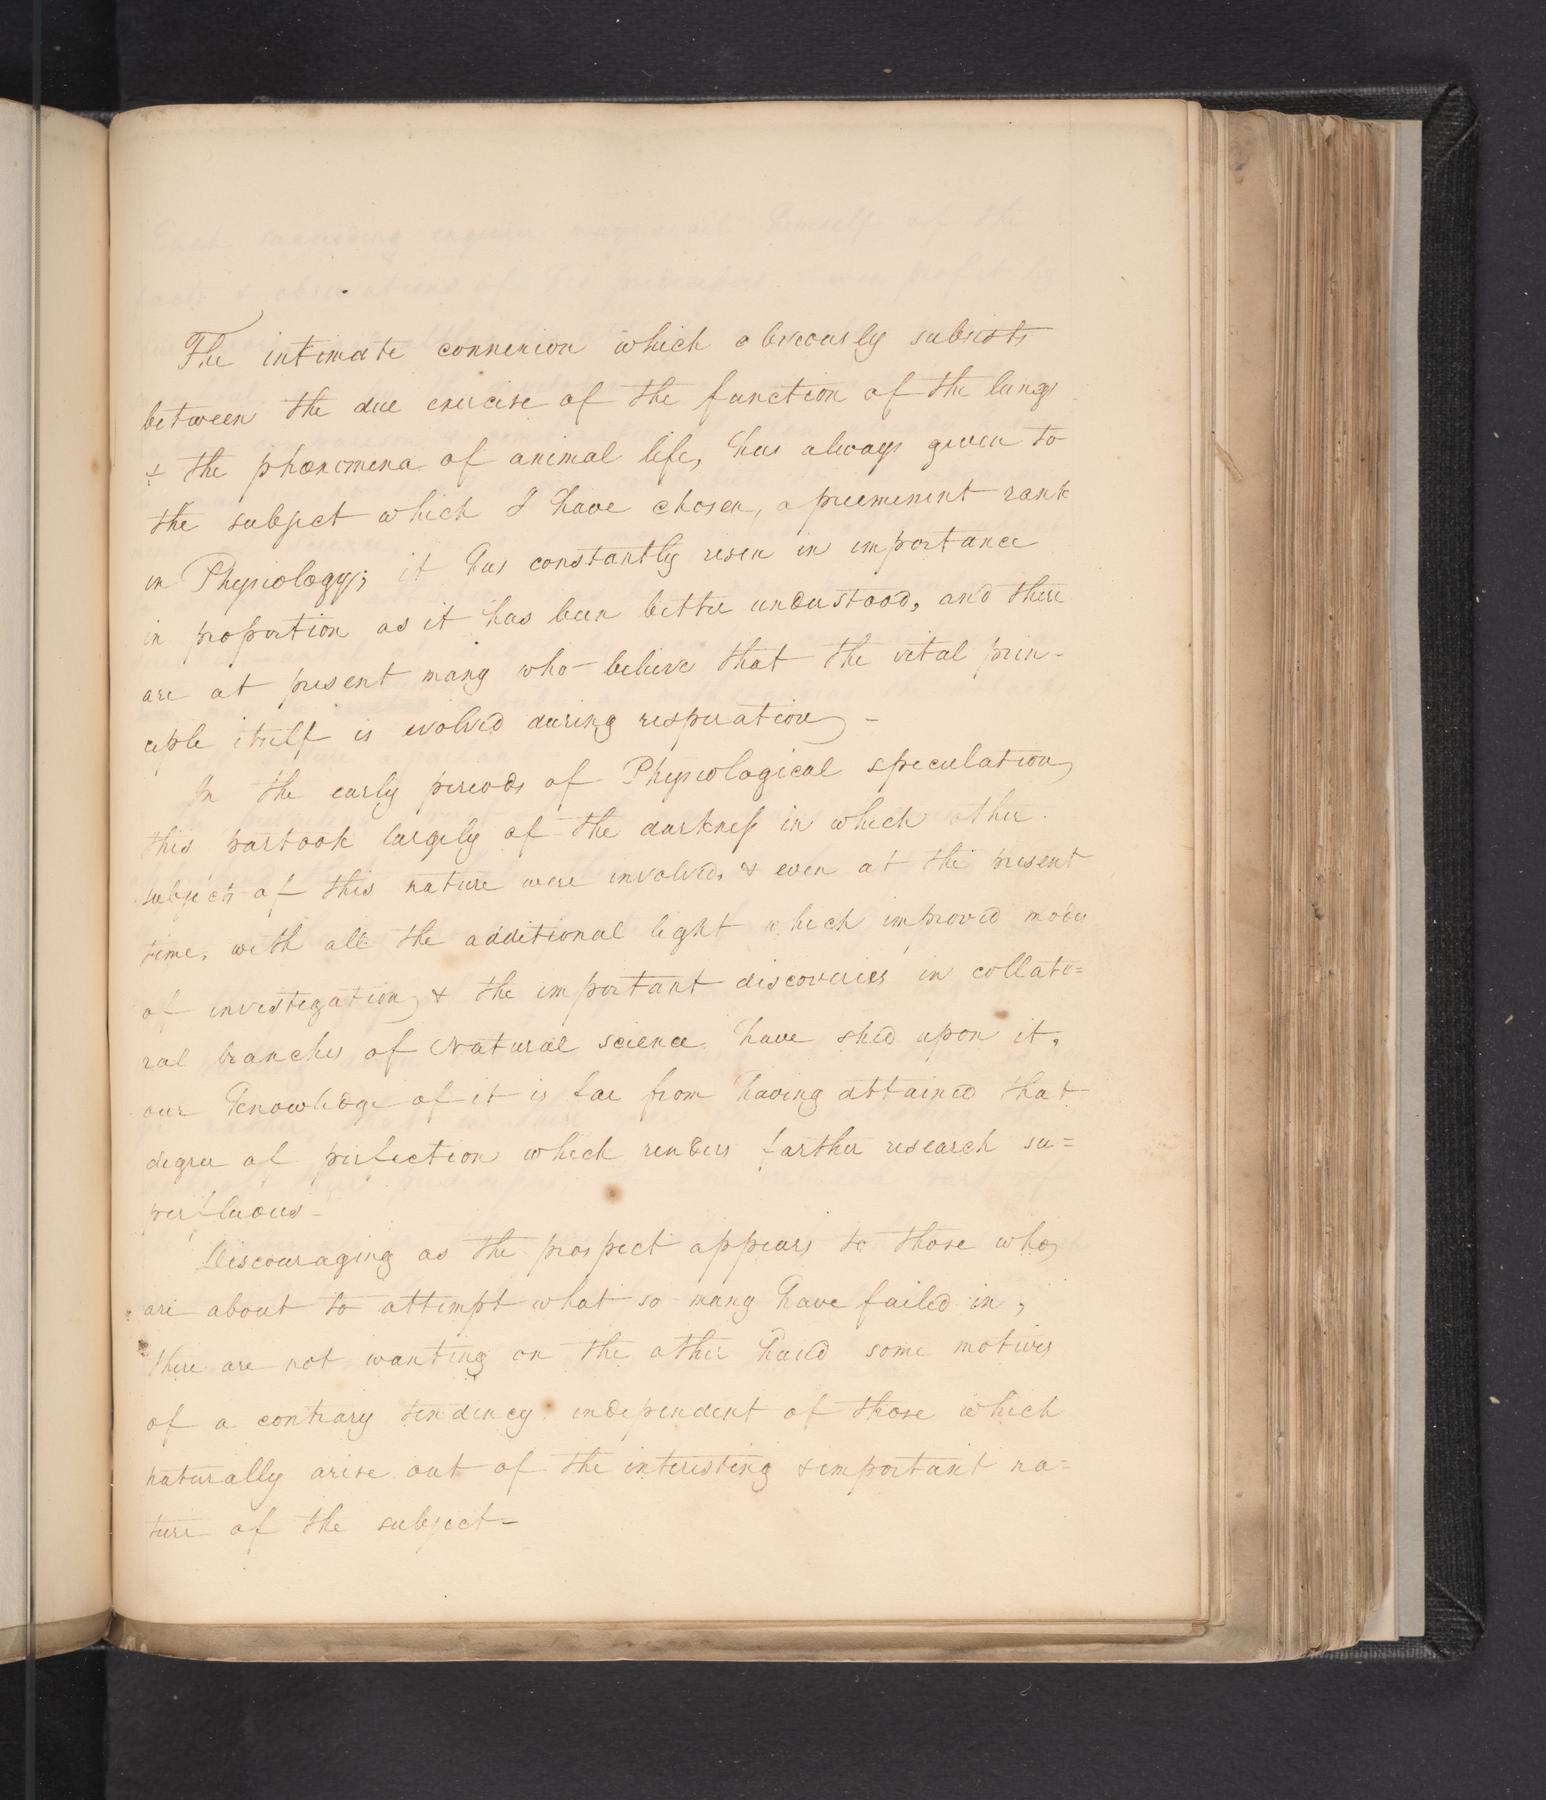 The intimate connexion which obviously subsists
between the due exercise of the function of the lungs
& the phœnomena of animal life, has always given to
the subject which I have chosen, a preeminent rank
in Physiology; it has constantly risen in importance
in proportion as it has been better understood, and there
are at present many who believe that the vital prin-
ciple itself is evolved during respiration -
In the early periods of Physiological speculation
this partook largely of the darkness in which other
subjects of this nature were involved, & even at the present
time, with all the additional light which improved modes
of investigation & the important discoveries in collate=
ral branches of Natural science have shed upon it,
our knowledge of it is far from having attained that
degree of perfection which renders farther research su=
perfluous -
Discouraging as the prospect appears to those who
are about to attempt what so many have failed in,
there are not wanting on the other hand some motives
of a contrary tendency independent of those which
naturally arise out of the interesting & important na=
ture of the subject -